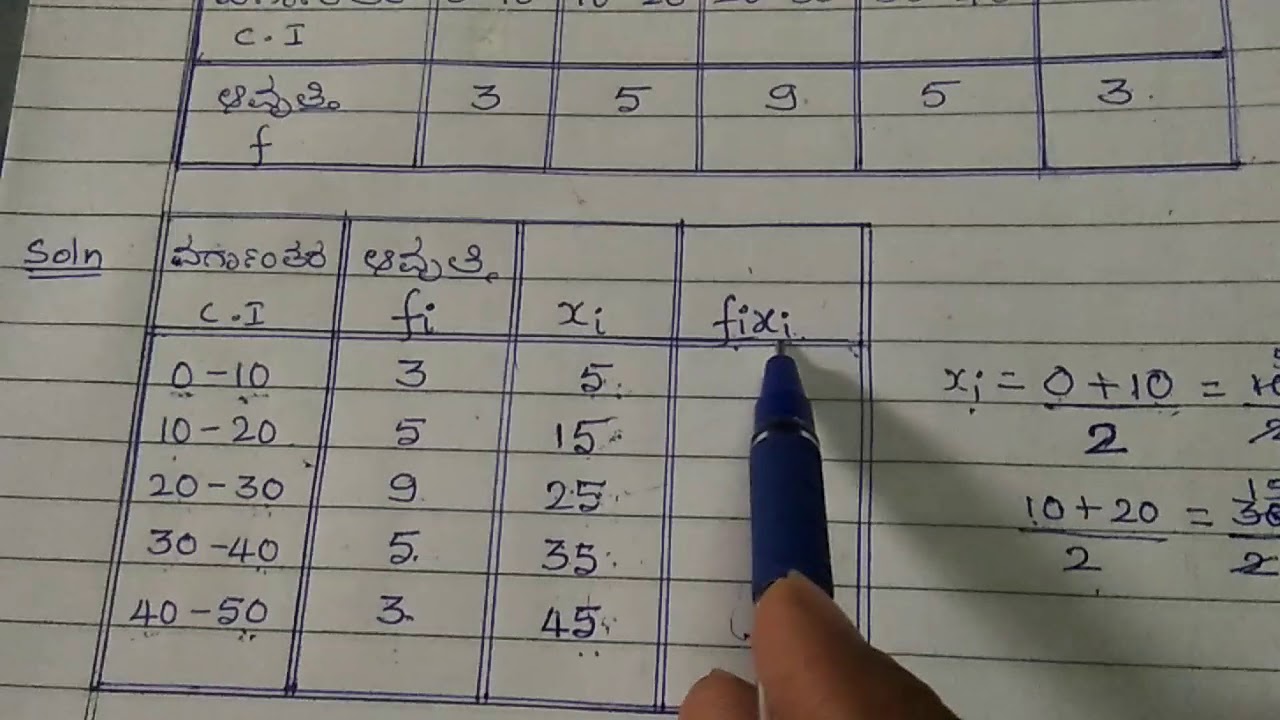 C.I
ಆವೃತ್ತಿ 3 5 9 5 3
f
Soln ವರ್ಗಾಂತರ ಆವೃತ್ತಿ
C.I fi xi fixi
0-10 3 5
10-20 5 15
20-30 9 25
30-40 5 35
40-50 3 45
xi = 0+10 =
2
10+20 =
2